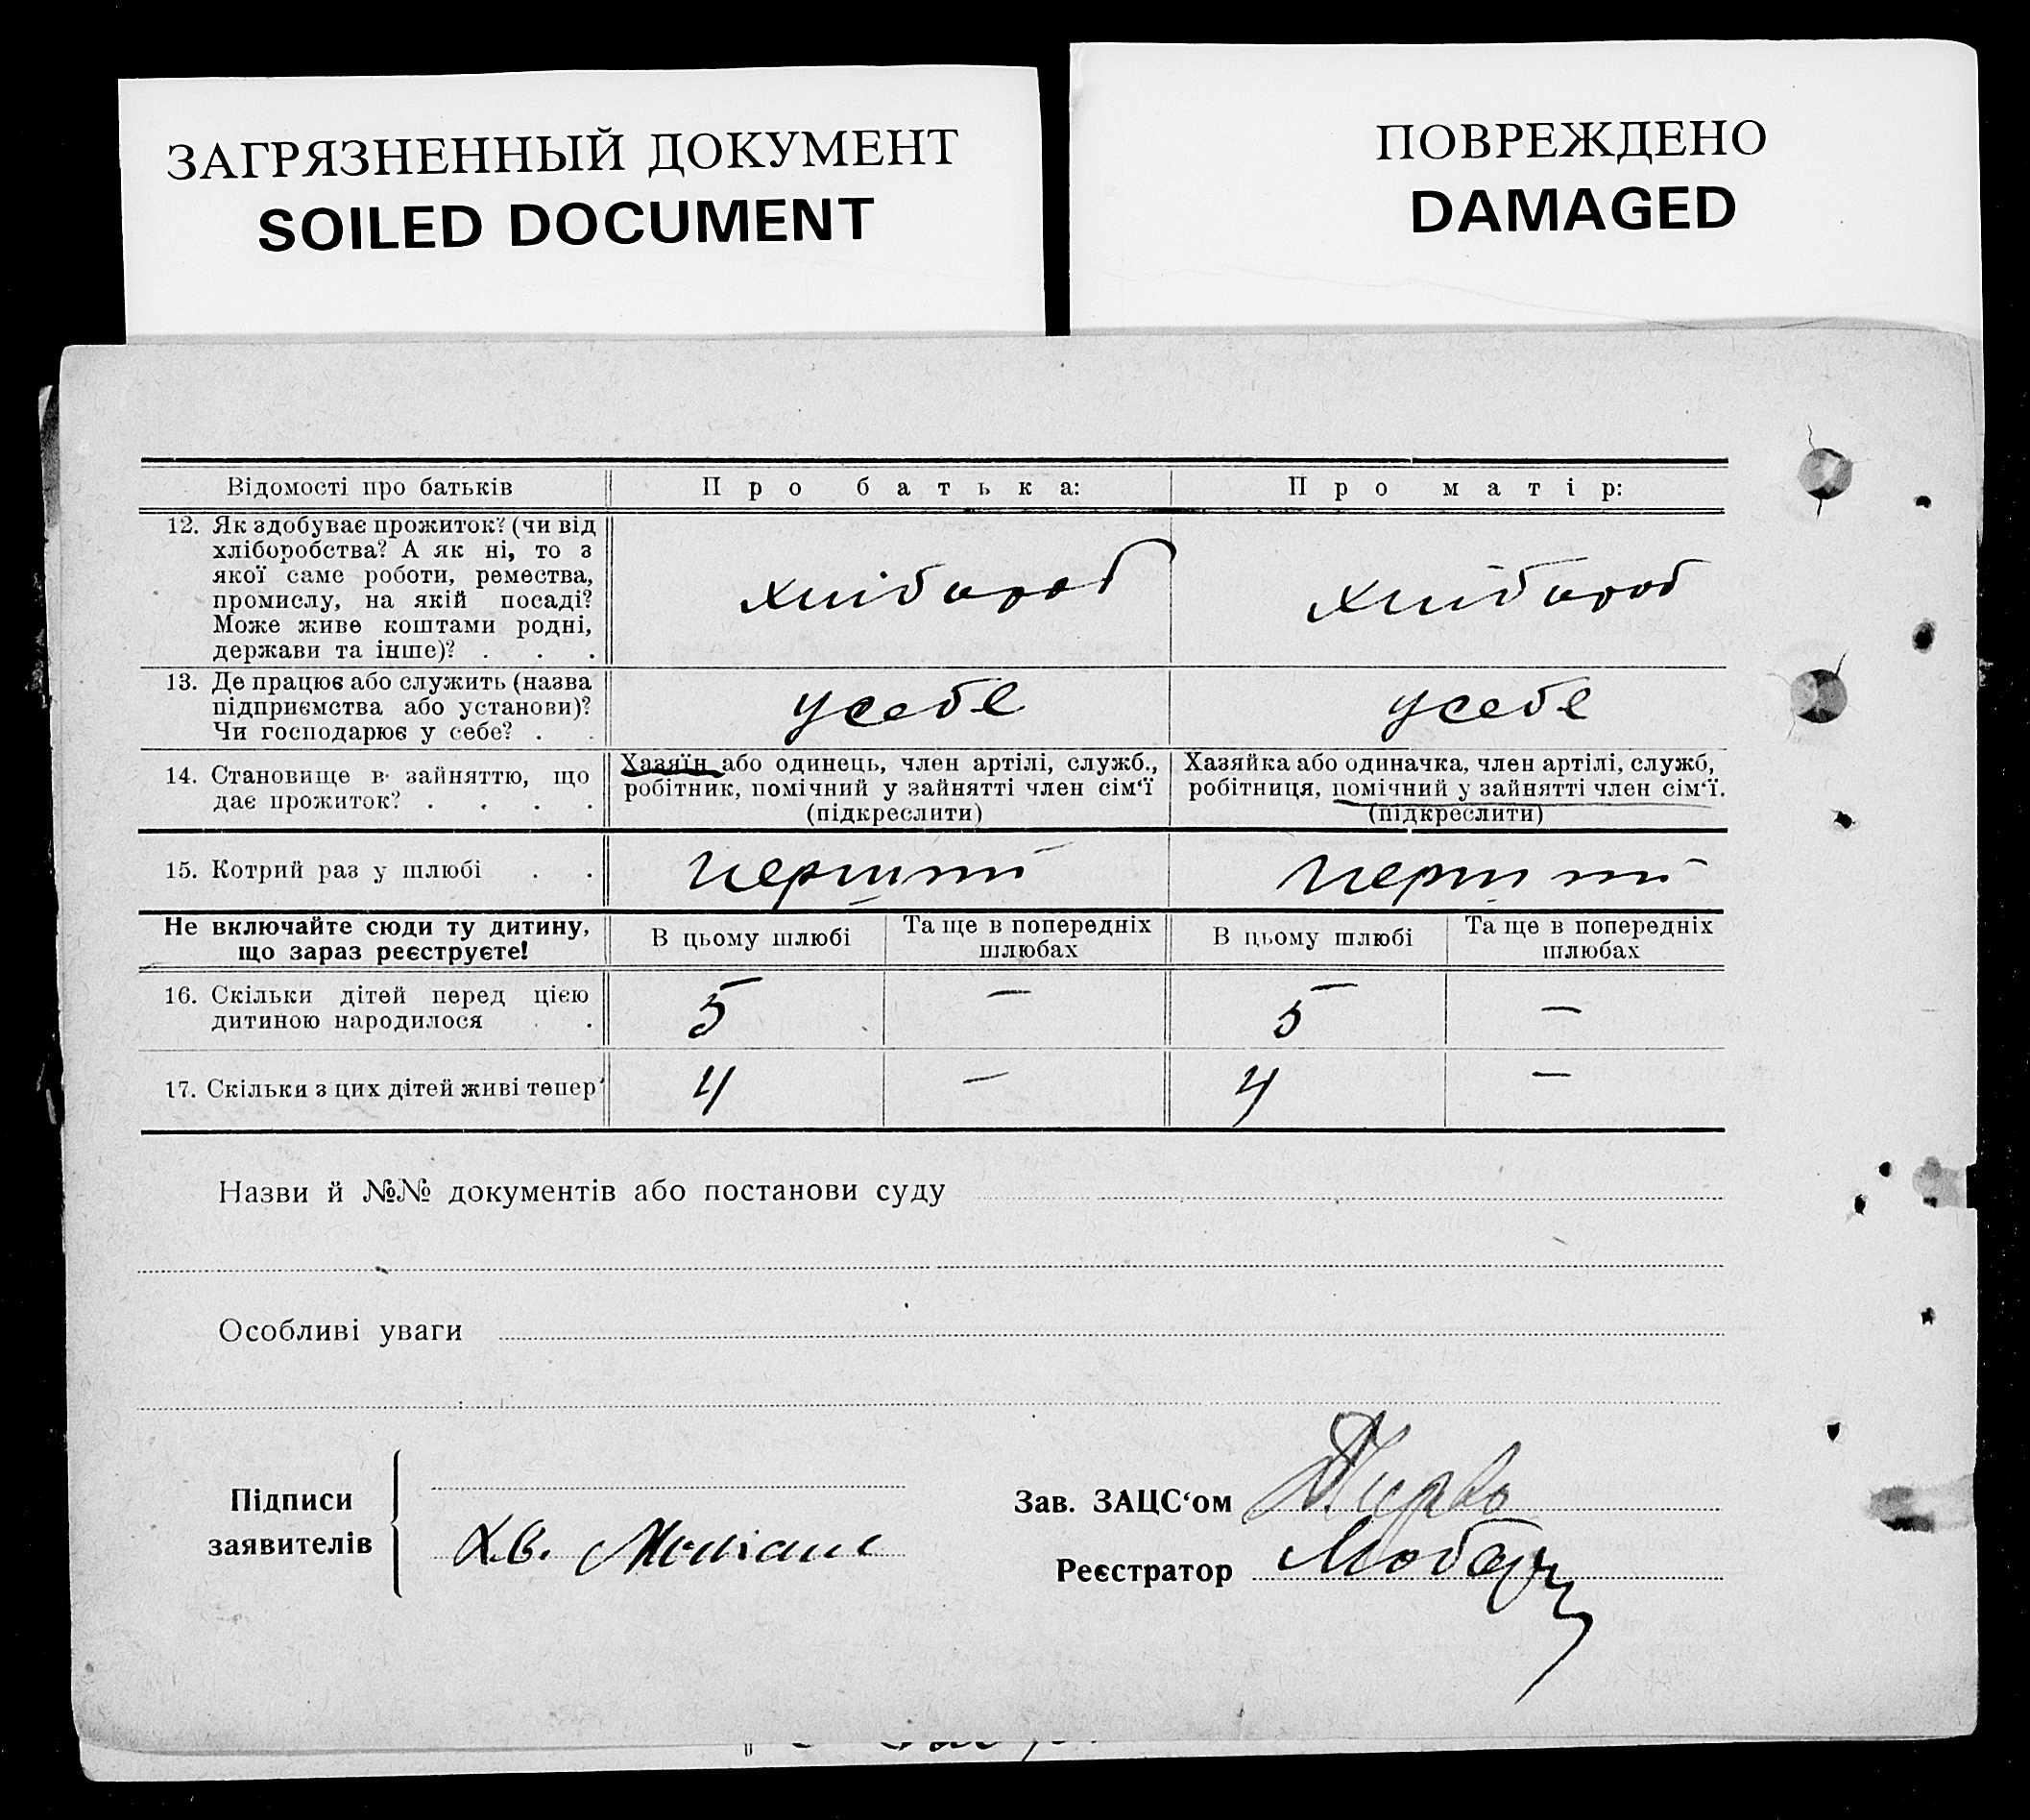 ЗАГРЯЗНЕННЫЙ ДОКУМЕНТ
SOILED DOCUMENT
ПОВРЕЖДЕНО
DAMAGED
Відомості про батьків Про батька: Про матір:
12. Як здобуває прожиток? (чи від
хліборобства? А як ні, то з
якої саме роботи, ремества,
промислу, на якій посаді?
Може живе коштами родні,
держави та інше)? . . .
хлібороб хлібороб
13. Де працює або служить (назва
підприємства або установи)?
Чи господарює у себе? . .
у себе у себе
14. Становище в зайняттю, що
дає прожиток? . . . .
Хазяїн або одинець, член артілі, служб.,
робітник, помічний у зайнятті член сім‘ї
(підкреслити)
Хазяйка або одиначка, член артілі, служб,
робітниця, помічний у зайнятті член сім‘ї.
(підкреслити)
15. Котрий раз у шлюбі . . перший перший
Не включайте сюди ту дитину,
що зараз реєструєте!
В цьому шлюбі Та ще в попередніх
шлюбах
В цьому шлюбі Та ще в попередніх
шлюбах
16. Скільки дітей перед цією
дитиною народилося . .
5 — 5 —
17. Скільки з цих дітей живі тепер 4 — 4 —
Назви й №№ документів або постанови суду
Особливі уваги
Підписи
заявителів
Хв.
Зав. ЗАЦС‘ом
Реєстратор